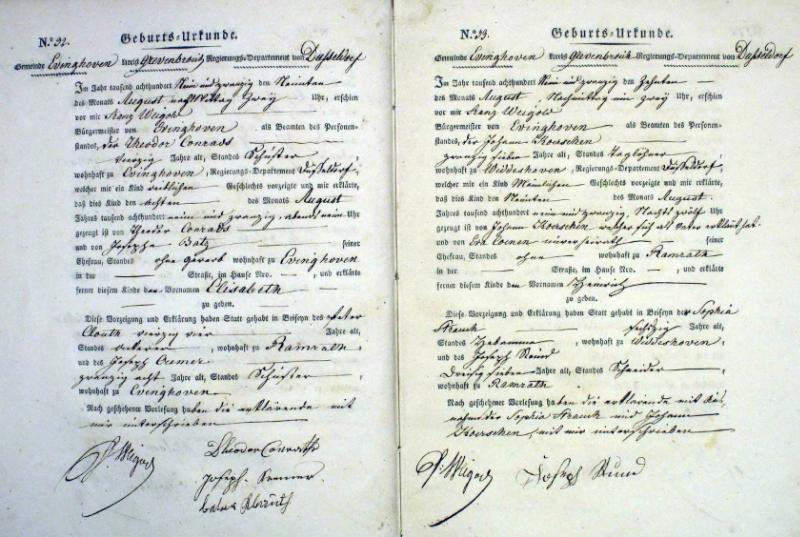 No. 92.
Geburts-Urkunde.
Gemeinde Evinghoven Kreis Grevenbroich Regierungs-Departement von Dusseldorf
Im Jahr tausend achthundert Neun und zwanzig den Neunten
des Monats August nachMittag zwey Uhr, erschien
vor mir Franz Weigold
Bürgermeister von Evinghoven als Beamten des Personen-
standes, der Theodor Conrads
vierzig Jahre alt, Standes Schüster
wohnhaft zu Evinghoven, Regierungs-Departement Dusseldorf,
welcher mir ein Kind weiblichen Geschlechts vorzeigte und mir erklärte,
daß dies Kind den achten des Monats August
Jahres tausend achthundert neun und zwanzig, abends neun Uhr
gezeugt ist von Theodor Conrads
und von Josepha Batz seiner
Ehefrau, Standes ohne Gewerb wohnhaft zu Evinghoven
in der Straße, im Hause Nro. , und erklärte
ferner diesem Kinde den Vornamen Elisabeth
zu geben.
Diese Vorzeigung und Erklärung haben Statt gehabt in Beiseyn des Peter
Clouth vierzig vier Jahre alt,
Standes Ackerer, wohnhaft zu Ramrath,
und des Joseph Cremer
zwanzig acht Jahre alt, Standes Schüster,
wohnhaft zu Evinghoven
Nach geschehener Verlesung haben die erklärende mit
mir unterschrieben
Theodor Conrads
Joseph
No. 93.
Geburts-Urkunde.
Gemeinde Evinghoven Kreis Grevenbroich Regierungs-Departement von Dusseldorf
Im Jahr tausend achthundert Neun und zwanzig den Zehnten
des Monats August Nachmittag um zwey Uhr, erschien
vor mir Franz Weigold
Bürgermeister von Evinghoven als Beamten des Personen-
standes, der Johann Koerschen
zwanzig sieben Jahre alt, Standes Taglöhner
wohnhaft zu Widdeshoven, Regierungs-Departement Dusseldorf,
welcher mir ein Kind Männlichen Geschlechts vorzeigte und mir erklärte,
daß dies Kind den Neunten des Monats August
Jahres tausend achthundert neun und zwanzig, Nachts zwölf Uhr
gezeugt ist von Johann Koerschen welcher sich als Vater erklärt hat
und von Eva Coenen unverheirath seiner
Ehefrau, Standes ohne wohnhaft zu Ramrath
in der Straße, im Hause Nro. , und erklärte
ferner diesem Kinde den Vornamen Heinrich
zu geben.
Diese Vorzeigung und Erklärung haben Statt gehabt in Beiseyn der Sophia
fuchzig Jahre alt,
Standes Hebamme, wohnhaft zu Widdeshoven,
und des Joseph
Dreisig sieben Jahre alt, Standes Schneider,
wohnhaft zu Ramrath
Nach geschehener Verlesung haben die erklärende mit Aus-
nahm der Sophia und Johann
Koerschen, mit mir unterschrieben
Joseph